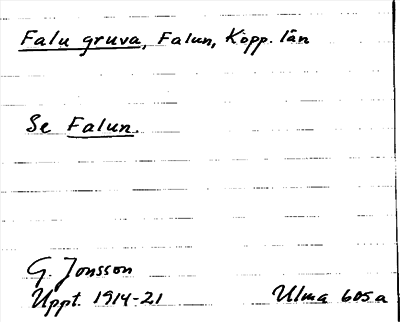 Falu gruva, Falun, Kopp. län
Se Falun.
G. Jonsson
Uppt. 1914-21 Ulma 605a